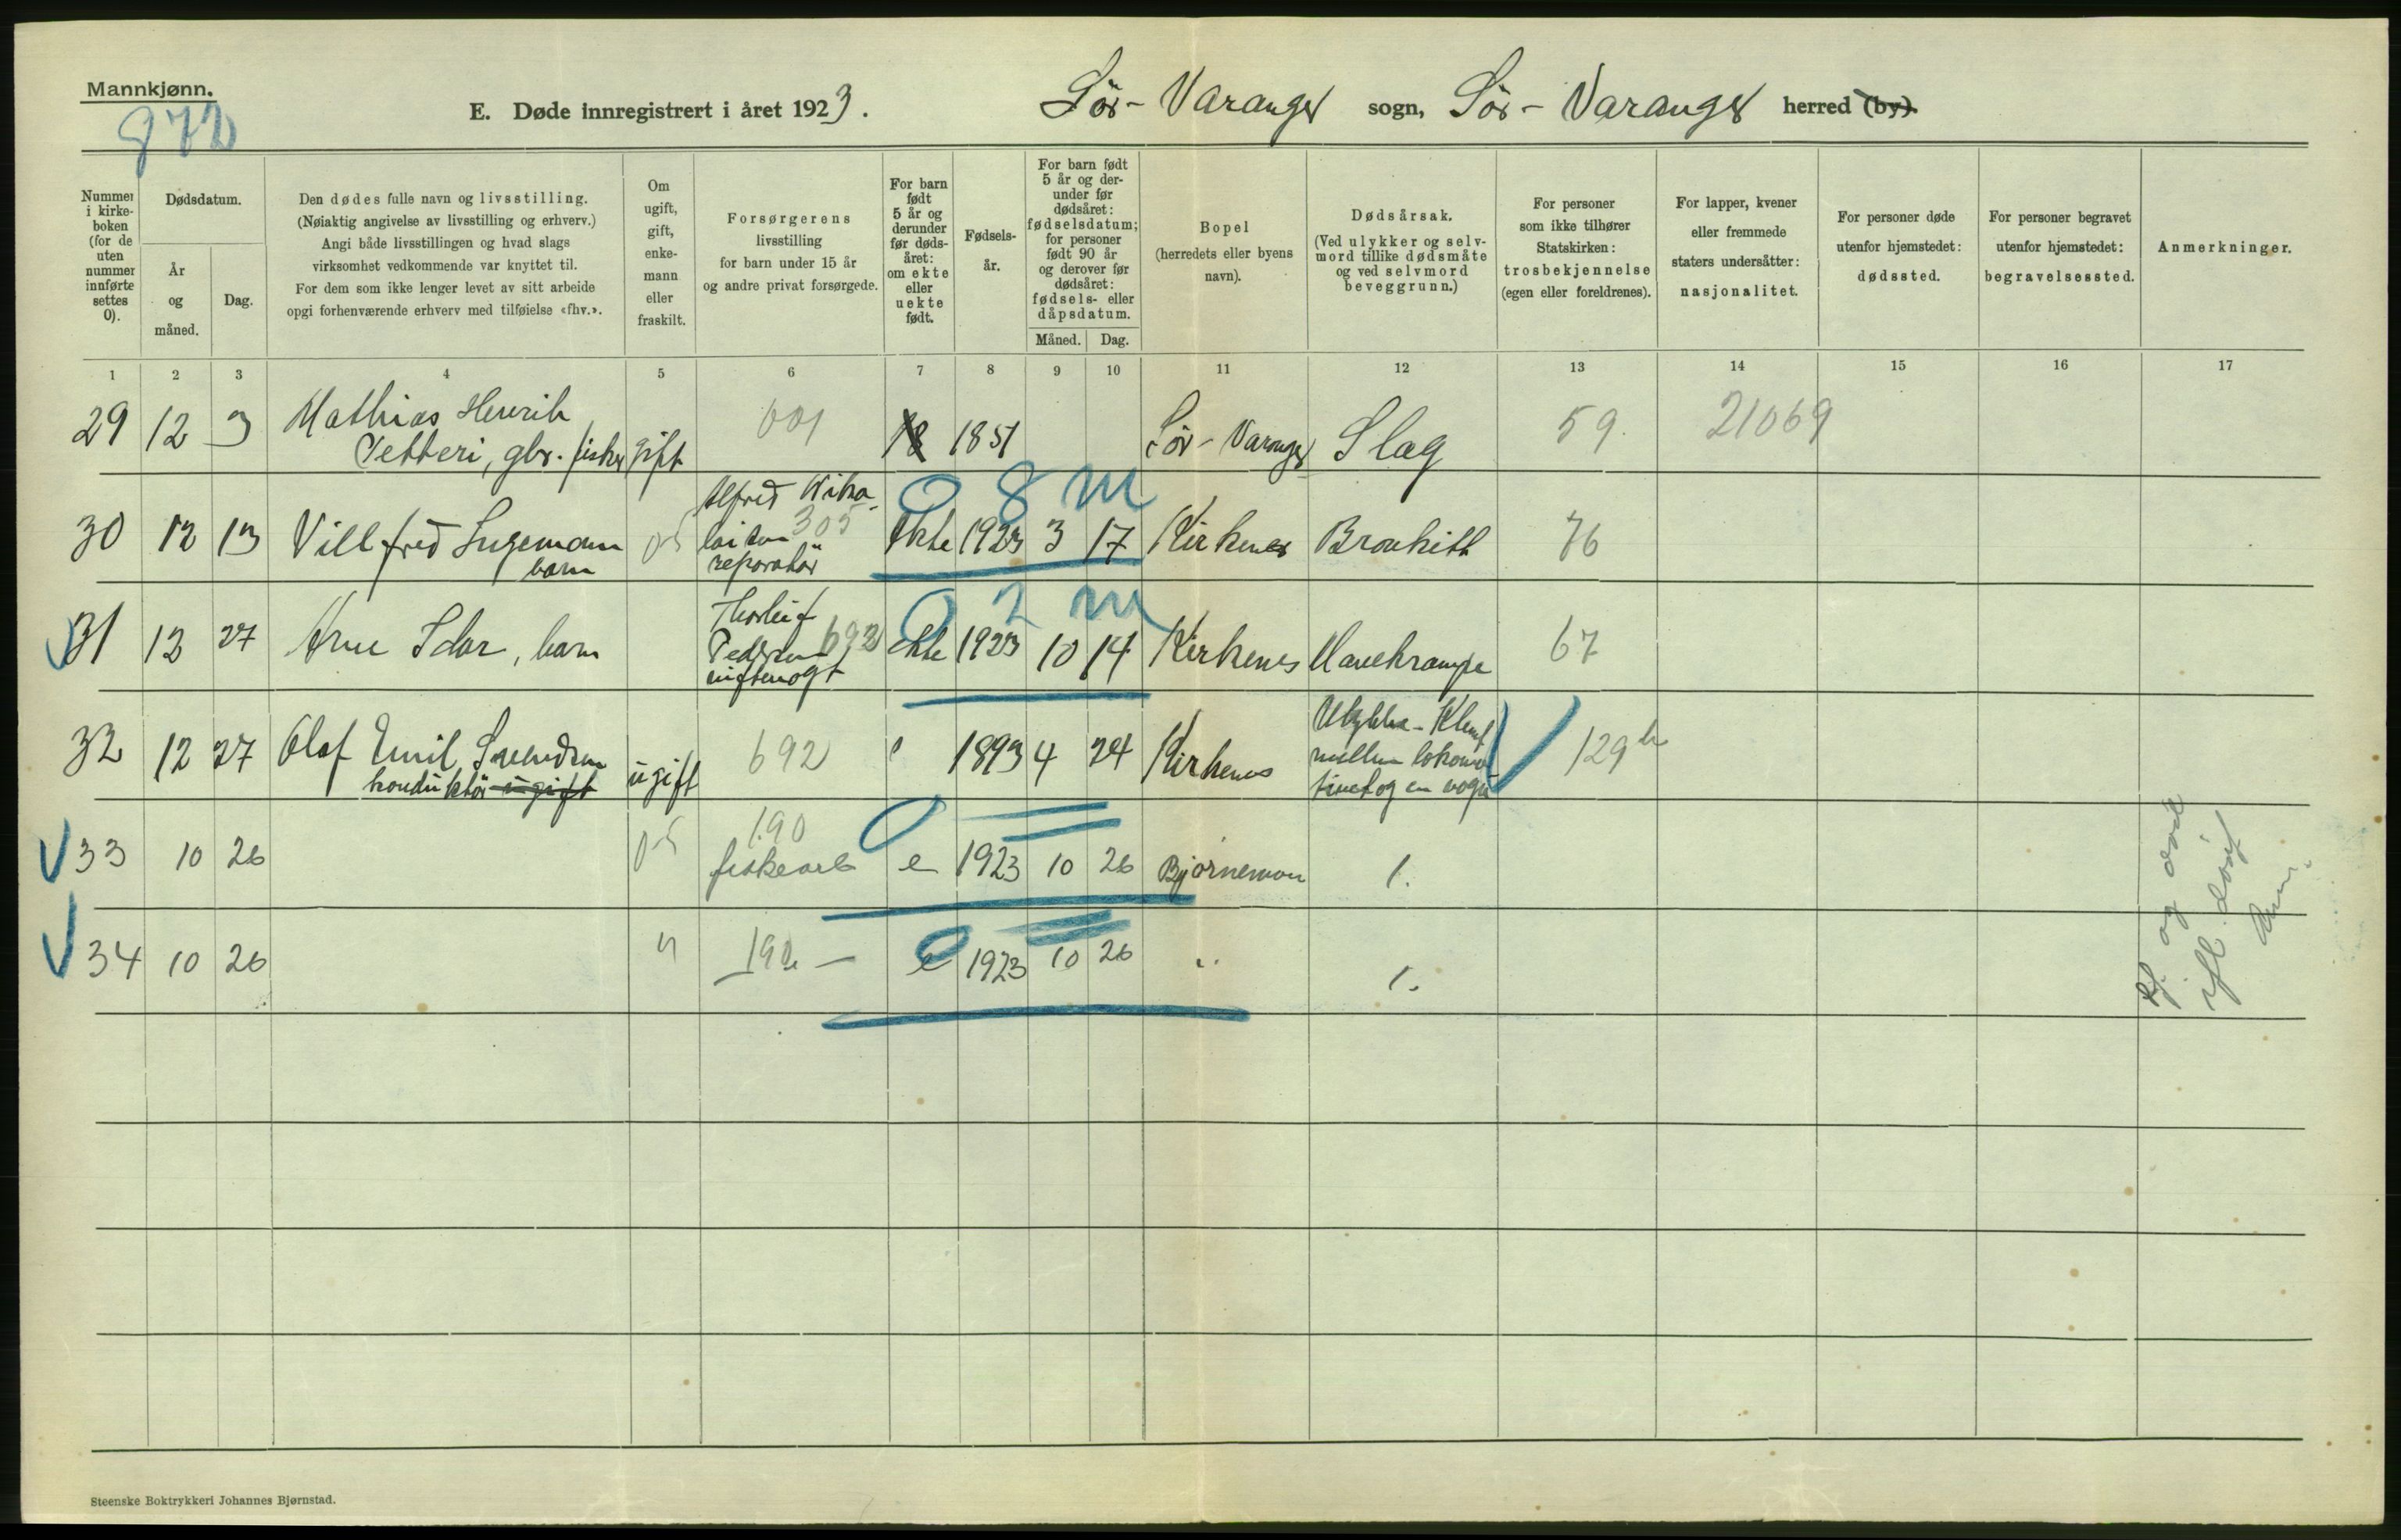 Mannkjønn.
872
E. Døde innregistrert i året 1923.
Sör-Varanger sogn, Sör-Varanger herred (by).
Nummer i kirkeboken (for de uten nummer innførte settes 0).
Dødsdatum.
År og måned.
Dag.
Den dødes fulle navn og livsstilling.
(Nøiaktig angivelse av livsstilling og erhverv.)
Angi både livsstillingen og hvad slags
virksomhet vedkommende var knyttet til.
For dem som ikke lenger levet av sitt arbeide
opgi forhenværende erhverv med tilføielse «fhv.».
Om ugift, gift, enkemann eller fraskilt.
Forsørgerens
livsstilling
for barn under 15 år
og andre privat forsørgede.
For barn født 5 år og derunder før dødsåret: om ekte eller uekte født.
Fødselsår.
For barn født 5 år og derunder før dødsåret: fødselsdatum; for personer født 90 år og derover før dødsåret: fødsels- eller dåpsdatum.
Måned.
Dag.
Bopel
(herredets eller byens
navn).
Dødsårsak.
(Ved ulykker og selvmord tillike dødsmåte og ved selvmord beveggrunn.)
For personer
som ikke tilhører
Statskirken:
trosbekjennelse
(egen eller foreldrenes).
For lapper, kvener
eller fremmede
staters undersåtter:
nasjonalitet.
For personer døde
utenfor hjemstedet:
dødssted.
For personer begravet
utenfor hjemstedet:
begravelsessted.
Anmerkninger.
1 2 3 4 5 6 7 8 9 10 11 12 13 14 15 16 17
29 12 3 Mathias Henrik
Petteri, gbr. fisker gift 601 18 1851 Sör-Varanger Slag 59. 21069
0 8 m
30 12 13 Villfred Ingemann
barn 05 Alfred Niko
laisen 305
reparatör Ekte 1923 3 17 Kirkenes Bronkitt 76
0 2 m
31 12 27 Arne Idar, barn Thorleif
Pedersen 692
ekte 1923 10 14 Kirkenes Mavekrampe 67
32 12 27 Olaf Emil Svendsen
konduktör ugift ugift 692 1893 4 24 Kirkenes Ulykke - Klemt
mellem lokomo
tivet og en vogn 129 h
33 10 26 05 190
fiskearb e 1923 10 26 Bjørnemon 1.
34 10 26 " 190 — e 1923 10 26 " 1.
og død
ifl.
Steenske Boktrykkeri Johannes Bjørnstad.